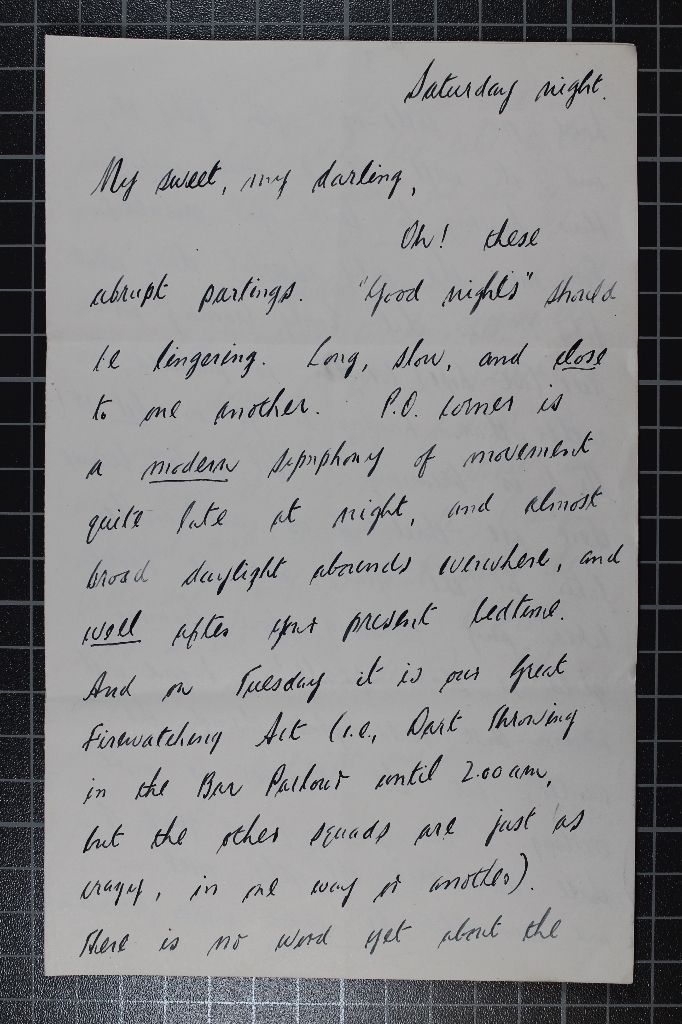 Saturday night.
My sweet, my darling,
Oh! these
abrupt partings. "Good nights" should
be lingering. Long, slow, and close
to one another. P.O. corner is
a modern symphony of movement
quite late at night, and almost
broad daylight abounds everwhere, and
well after your present bedtime.
And on Tuesday it is our Great
Firewatching Act (i.e., Dart Throwing
in the Bar Parlour until 2.00 am,
but the other squads are just as
crazy, in one way or another).
There is no word yet about the